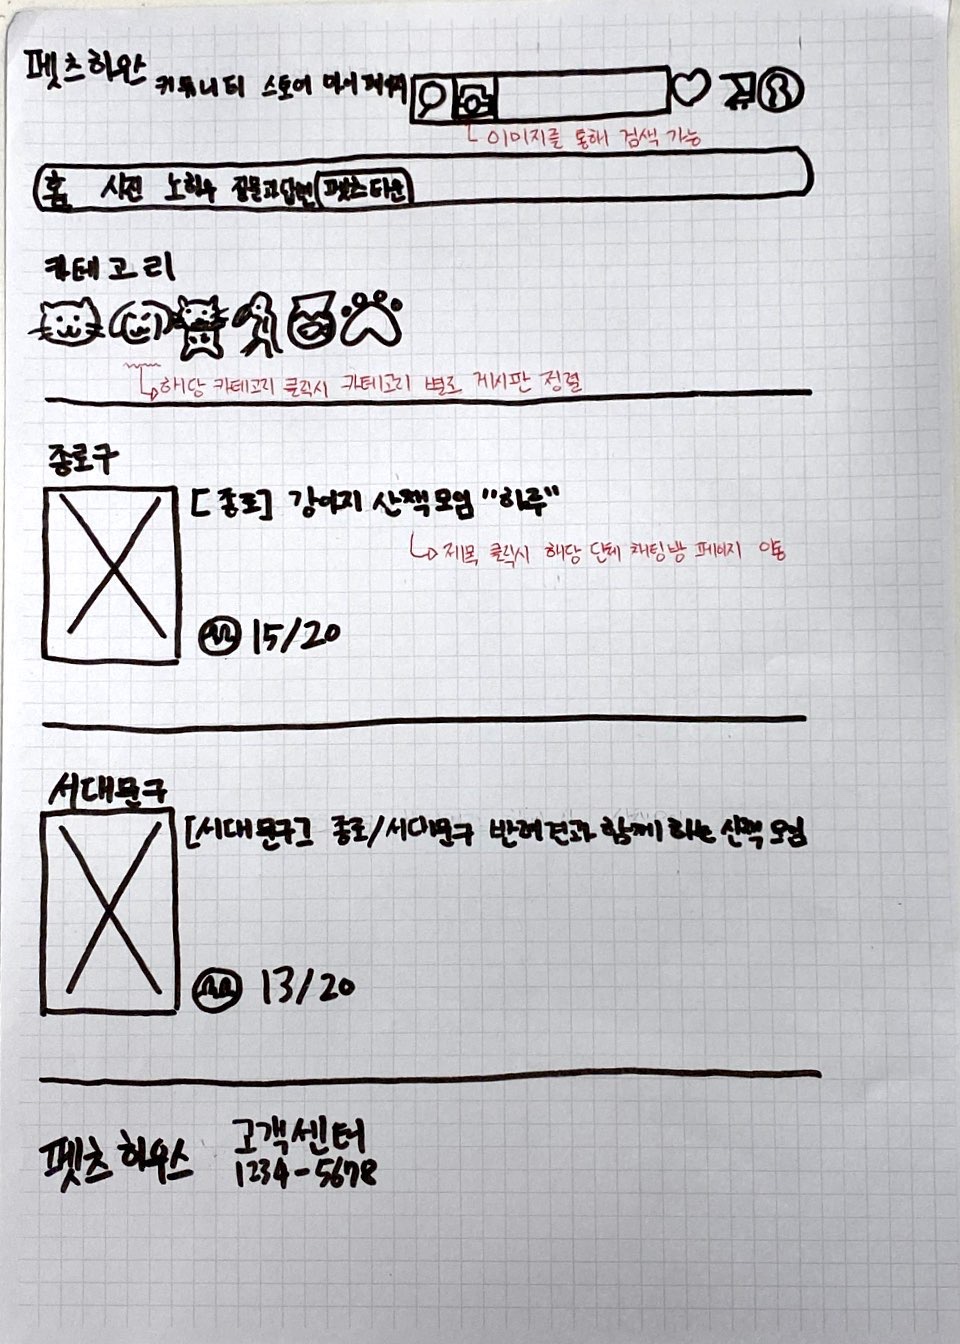 펫츠하우스 커뮤니티 스토어 마이페이지
이미지를 통해 검색 가능
홈 사진 노하우 질문과답변 펫츠타운
카테고리
해당 카테고리 클릭시 카테고리 별로 게시판 정렬
종로구
[종로] 강아지 산책모임 "하루"
제목 클릭시 해당 단체 채팅방 페이지 이동
15/20
서대문구
[서대문구] 종로/서대문구 반려견과 함께하는 산책 모임
13/20
펫츠하우스 고객센터
1234-5678